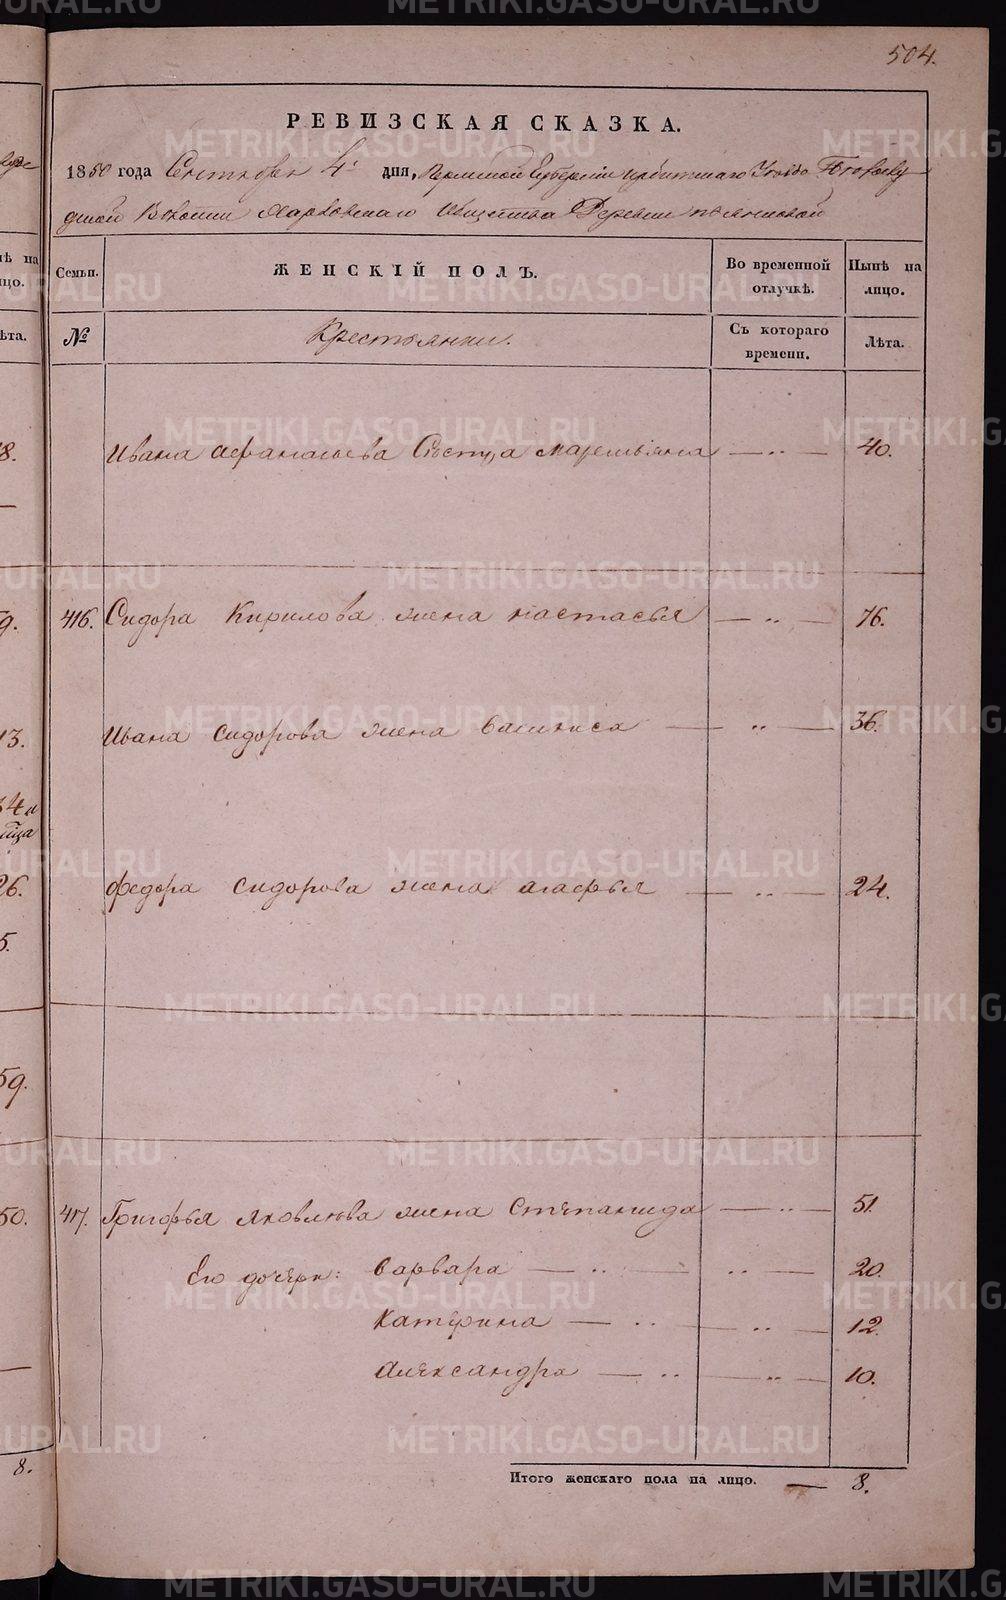 504.
РЕВИЗСКАЯ СКАЗКА.
1850 года Сентября 4 дня, Пермской Губернии Ирбитскаго Уезда
Волости Марковскаго Общества Деревни
Семьи. ЖЕНСКІЙ ПОЛЪ. Во временной отлучкѣ. Нынѣ на лицо.
№ Крестьянки. Съ котораго времени. Лѣта.
Ивана Афанасьева Сестра Маремьяна — „ — 40.
416. Сидора Кирилова жена настасья — „ — 76.
Ивана Сидорова жена василиса — „ — 36.
федора сидорова жена агафья — „ — 24.
417. Григорья яковлева жена Степанида — „ — 51.
Его дочери: варвара — „ — „ — 20.
Катерина — „ — „ — 12.
Александра — „ — „ — 10.
Итого женскаго пола на лицо. — 8.
ѣ на
цо.
ѣта.
8.
9.
13.
34
26.
5.
59.
50.
8.
METRIKI.GASO-URAL.RU